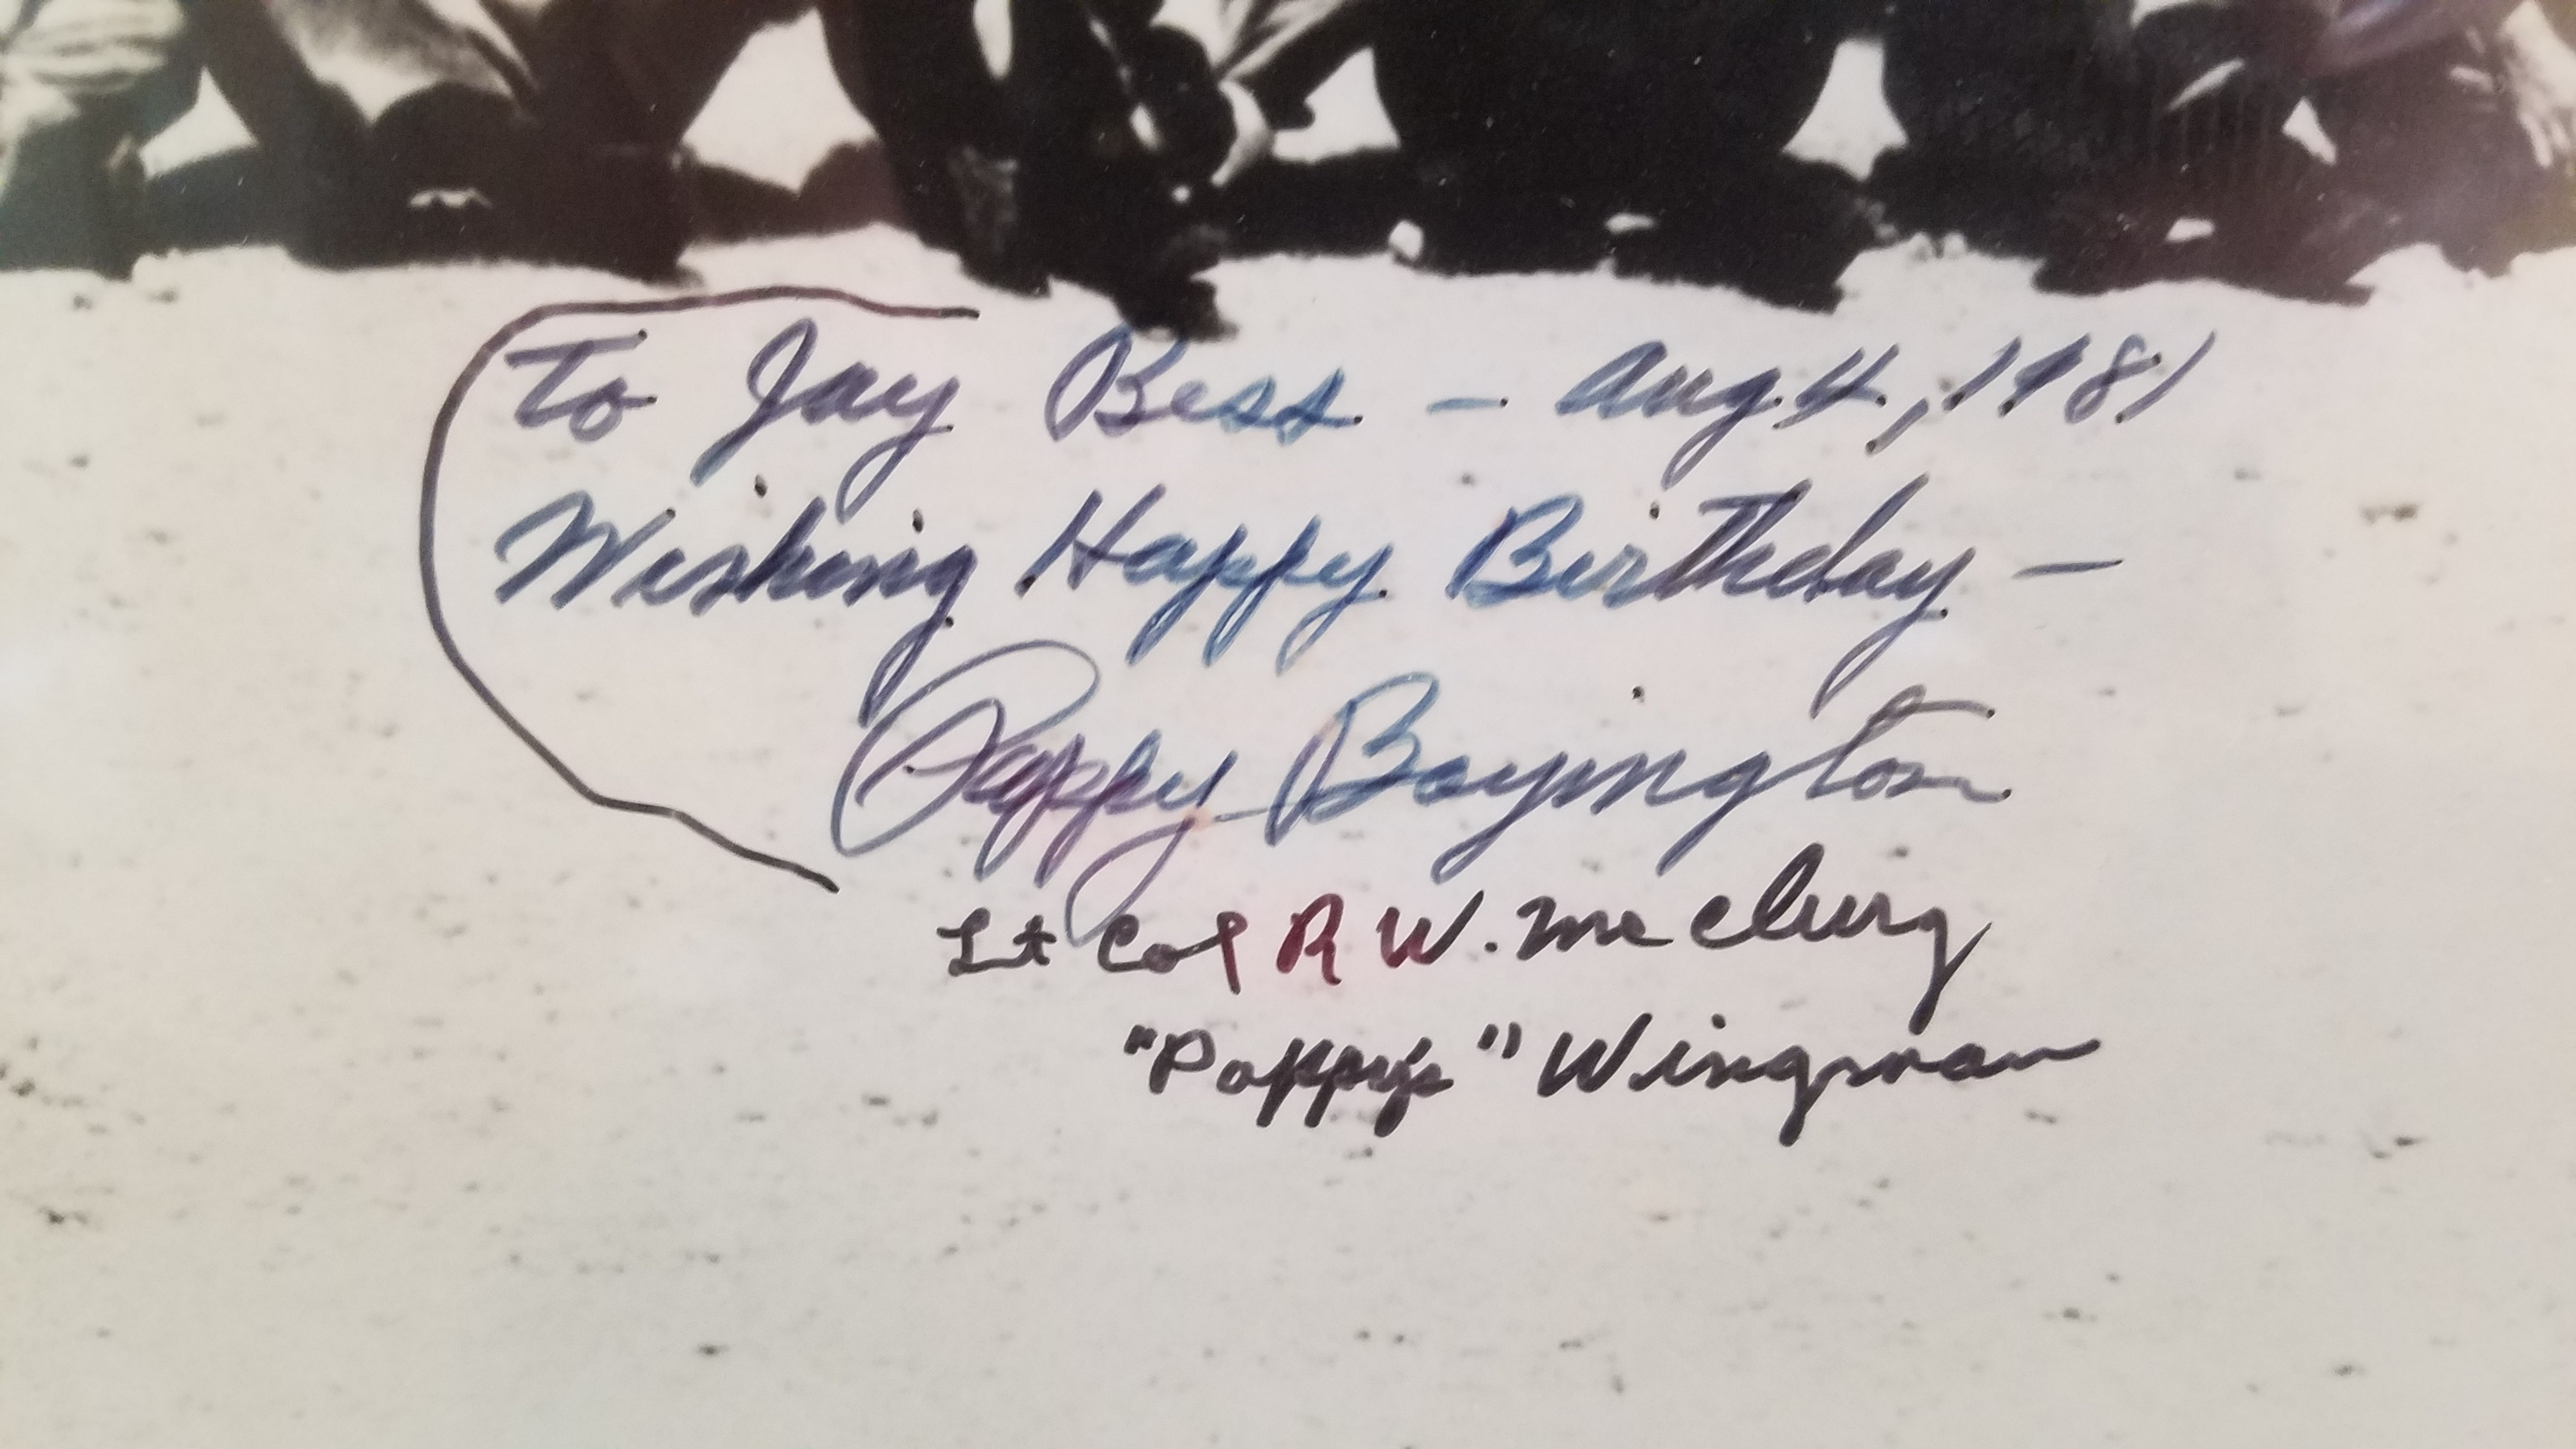 To Jay Bess - Aug 4, 1981
Wishing Happy Birthday -
Pappy Boyington
Lt Col R W. McClurg
"Pappy's" Wingman